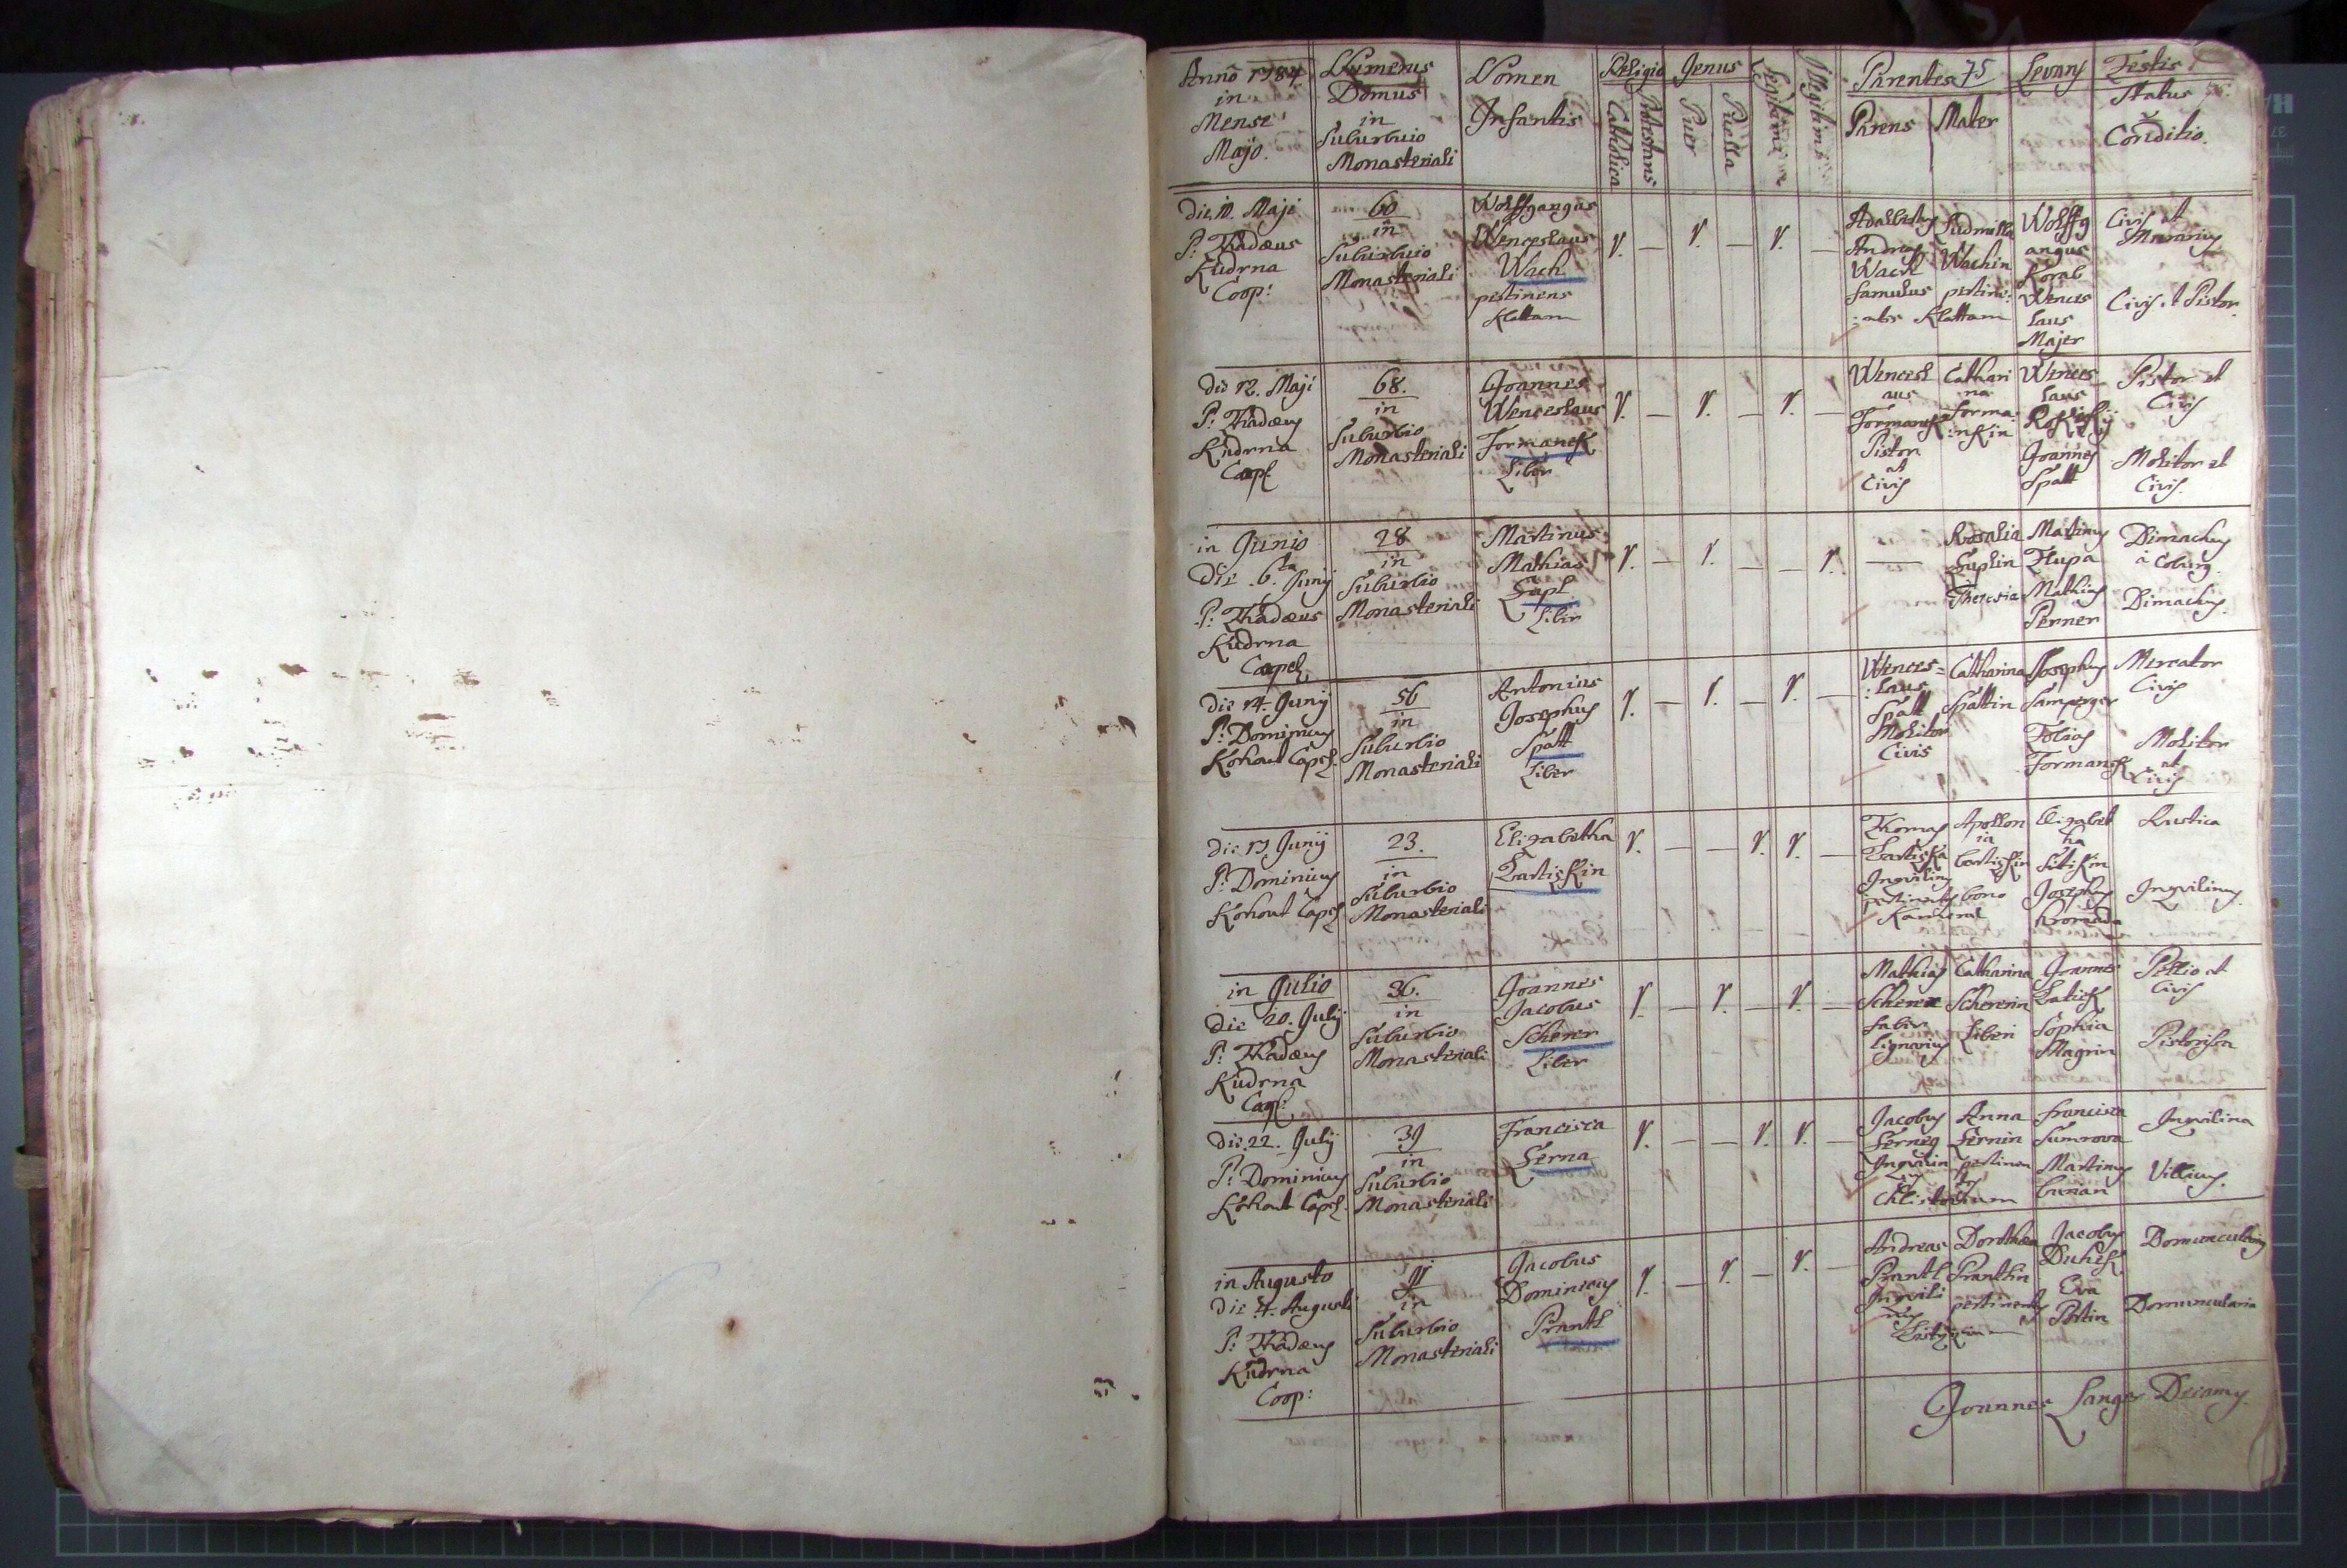 Anno 1784
in
Mense
Majo.
Numerus
Domus
in
Suburbio
Monasteriali
Nomen
Infantis
Religio
Catholica
Protestans
Genus
Puer
Puella
Legitimi
Illegitimi
Parentes 75
Parens
Mater
Levans
Testis
Status
Conditio.
die 10. Maji
P: Thadæus
Kudrna
Coop:
60
in
Suburbio
Monasteriali
Wolffgangus
Wenceslaus
Wach
pertinens
Klattam
Adalbertus
Andreas
Wach
famulus
Ludmilla
Wachin
pertine:
Klattam
Wolffg
angus
Koral
Wences
laus
Majer
Civis et
Murarius
Civis et Pistor
die 12. Maji
P: Thadæus
Kudrna
Capl
68.
in
Suburbio
Monasteriali
Joannes
Wenceslaus
Formanek
Liber
Wencesl
aus
Formanek
Pistor
et
Civis
Cathari
na
Forma:
:nkin
Wences
laus
Joannes
Spatt
Pistor et
Civis
Molitor et
Civis.
in Junio
die 6ta Junij
P: Thadæus
Kudrna
Capel
28
in
Suburbio
Monasteriali
Martinus
Mathias
Supl
Liber
Rosalia
Suplin
Theresia
Martinus
Hupa
Mathias
Perner
Dimachus
à Coburg.
Dimachus.
die 14. Junij
P: Dominicus
Kohout Capel.
56
in
Suburbio
Monasteriali
Antonius
Josephus
Spatt
Liber
Wences=
:laus
Spatt
Molitor
Civis
Catharina
Spattin
Josephus
Samperger
Tobias
Formanek
Mercator
Civis
Molitor
et
Civis
die 17 Junij
P: Dominicus
Kohout Capel
23.
in
Suburbio
Monasteriali
Elizabetha
Bartiskin
Thomas
Bartiska
Inquilinus
pertinentes
Kameral
Apollon
ia
bartiskin
bono
Elizabet
ha
Sitikin
Josephus
Rustica
Inquilinus
in Julio
die 20. Julij
P: Thadæus
Kudrna
Capl:
36.
in
Suburbio
Monasteriali
Joannes
Jacobus
Scherer
Liber
Mathias
Scherer
faber
lignarius
Catharina
Schererin
Liberi
Joannes
Latick
Sophia
Magrin
Pellio et
Civis
Pistorissa
die 22. Julij
P: Dominicus
Kohout Capel.
39
in
Suburbio
Monasteriali
Francisca
Serna
Jacobus
Inquilin
Anna
Sernin
pertinen
Francisca
Sumrova
Martinus
burian
Inquilina
Villicus.
in Augusto
die 4. Augusti
P: Thadæus
Kudrna
Coop:
in
Suburbio
Monasteriali
Jacobus
Dominicus
Prantl
Andreas
Prantl
Inquili
nus
Dorothea
Prantlin
pertinentes
Jacobus
Duhek
Eva
Domuncularius
Domuncularia
Joannes Langer Decanus.